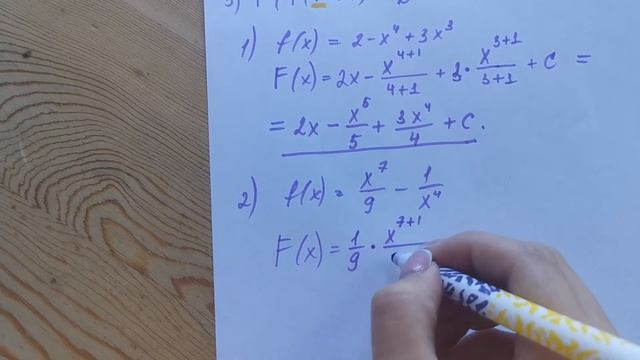 1) f(x) = 2 - x^4 + 3x^3
F(x) = 2x - x^{4+1}/4+1 + 3 · x^{3+1}/3+1 + C =
= 2x - x^5/5 + 3x^4/4 + C.
2) f(x) = x^7/9 - 1/x^4
F(x) = 1/9 · x^{7+1}